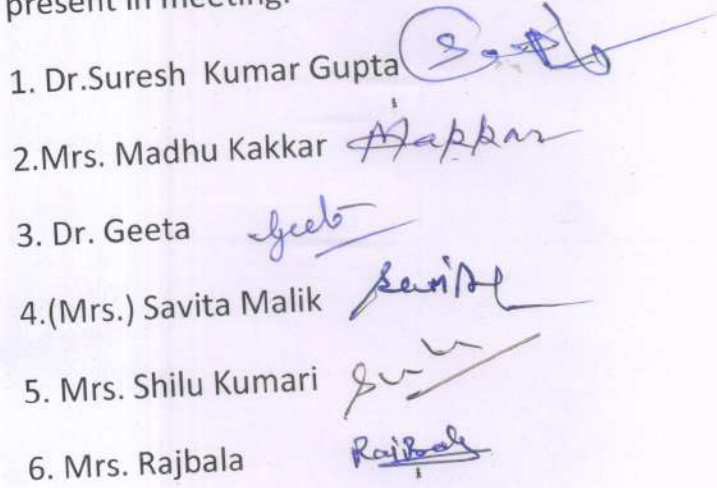 present in meeting.
1. Dr.Suresh Kumar Gupta
2.Mrs. Madhu Kakkar
3. Dr. Geeta Geeta
4.(Mrs.) Savita Malik
5. Mrs. Shilu Kumari
6. Mrs. Rajbala Rajbala